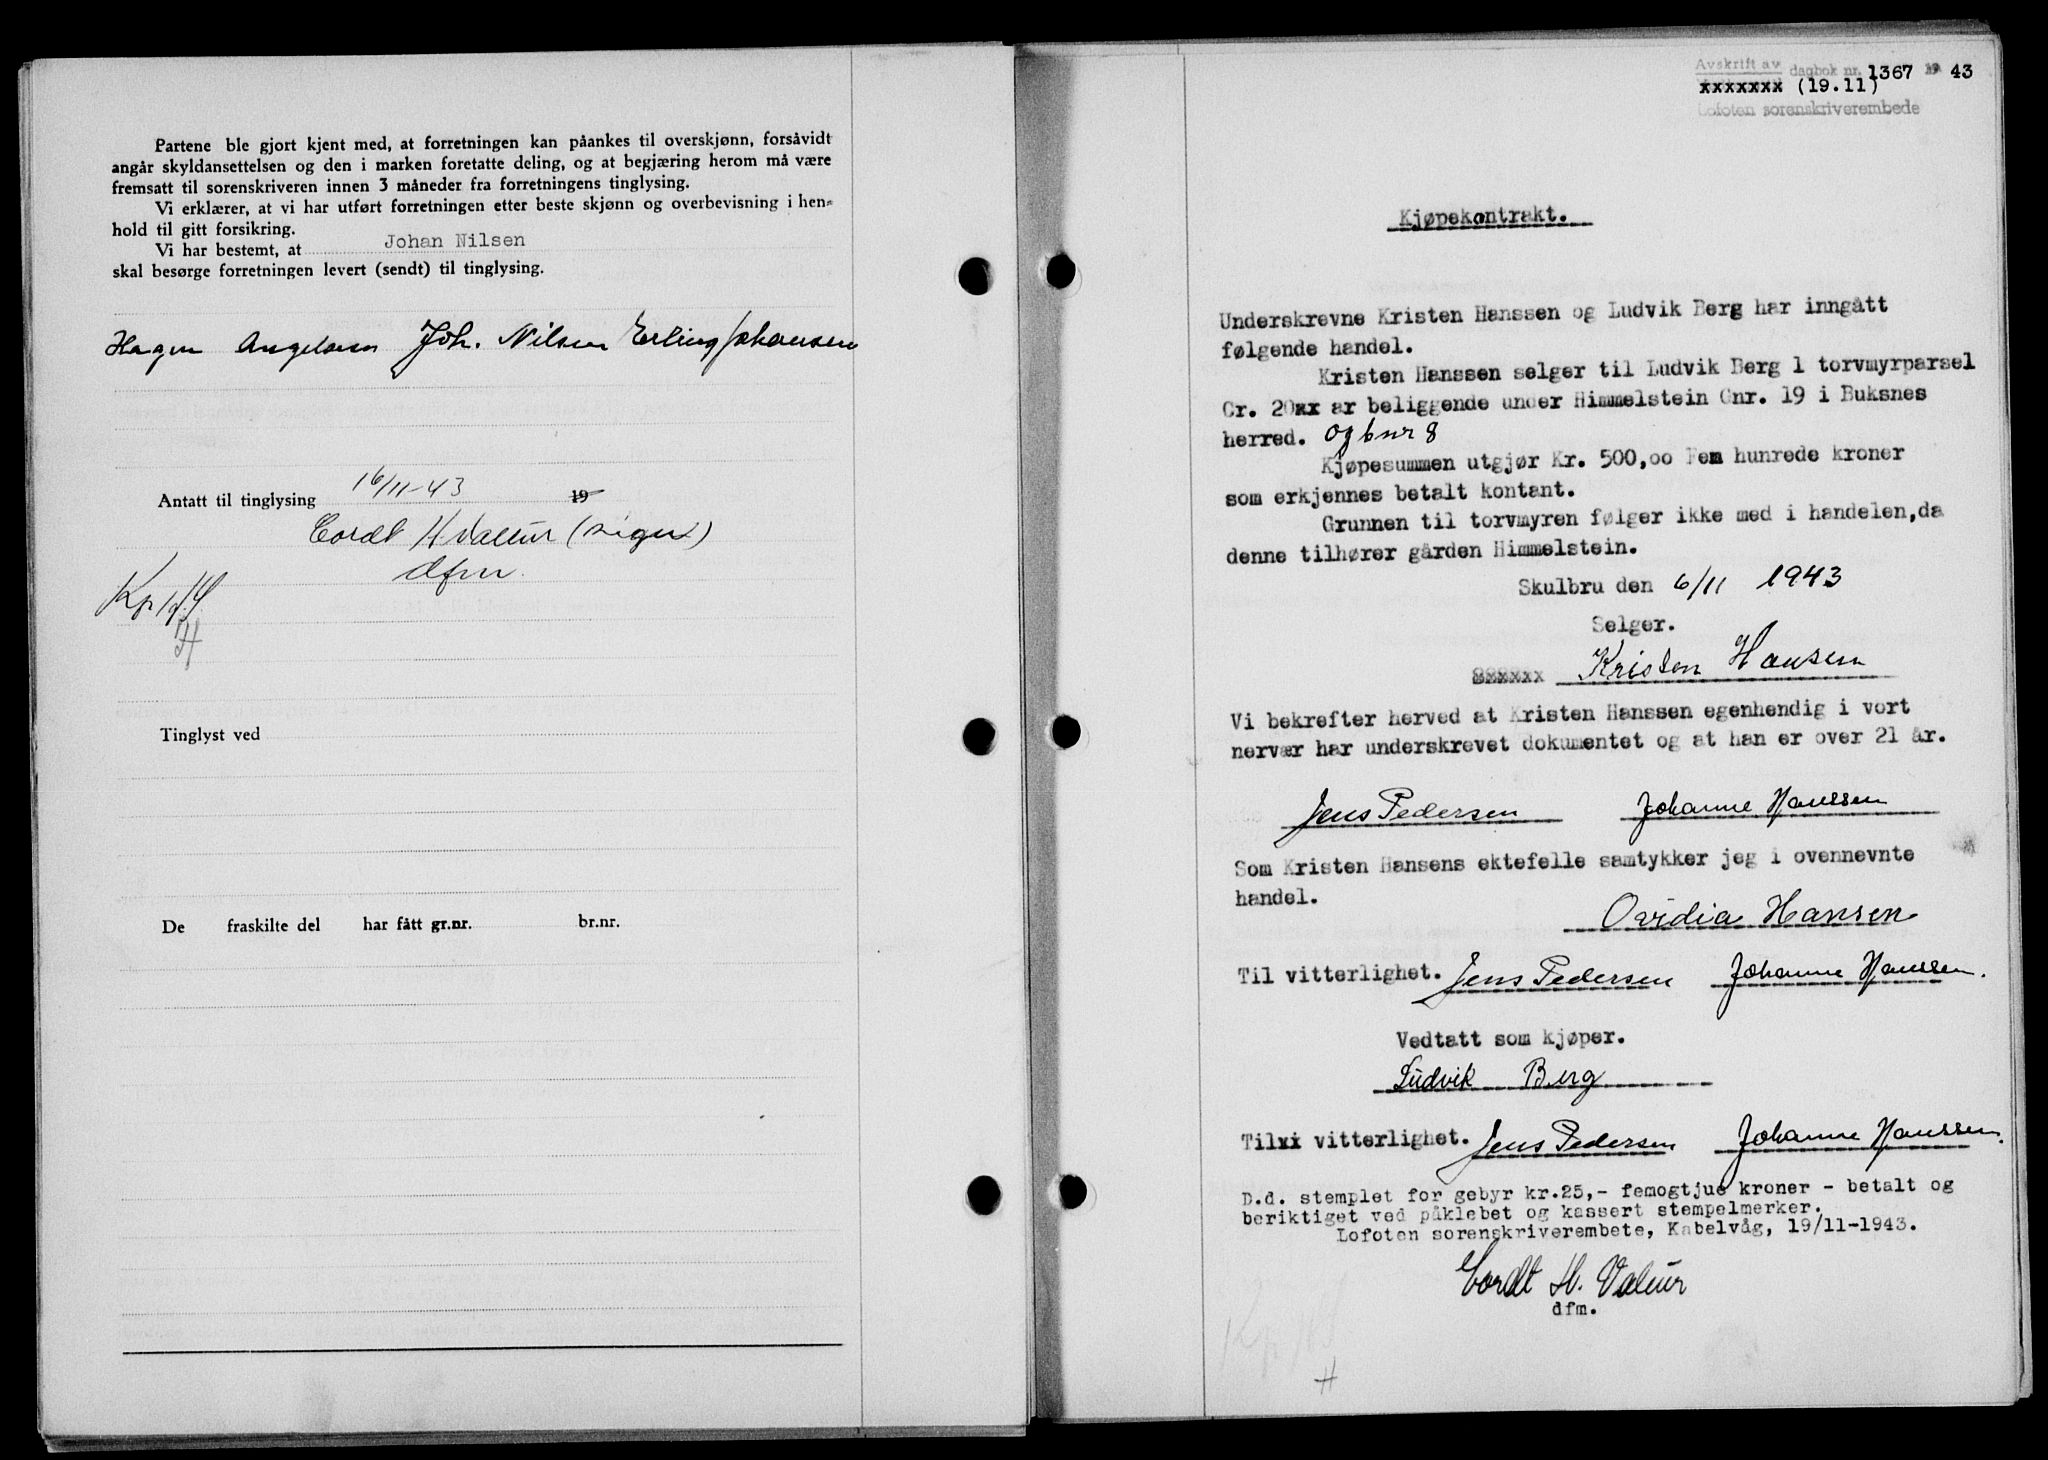 Partene ble gjort kjent med, at forretningen kan påankes til overskjønn, forsåvidt
angår skyldansettelsen og den i marken foretatte deling, og at begjæring herom må være
fremsatt til sorenskriveren innen 3 måneder fra forretningens tinglysing.
Vi erklærer, at vi har utført forretningen etter beste skjønn og overbevisning i hen-
hold til gitt forsikring.
Vi har bestemt, at Johan Nilsen
skal besørge forretningen levert (sendt) til tinglysing.
Hagen Angelsen Joh. Nilsen Erling Johansen
Antatt til tinglysing 16/11-43 19
Cordt H Valeur (sign)
dfm.
Tinglyst ved
De fraskilte del har fått gr.nr. br.nr.
Avskrift av dagbok nr. 1367 19 43
xxxxxxx (19.11)
Lofoten sorenskriverembede
Kjøpekontrakt.
Underskrevne Kristen Hanssen og Ludvik Berg har inngått
følgende handel.
Kristen Hanssen selger til Ludvik Berg 1 torvmyrparsel
Cr. 20xx ar beliggende under Himmelstein Gnr. 19 i Buksnes
herred. og bnr 8
Kjøpesummen utgjør Kr. 500,oo Fem hunrede kroner
som erkjennes betalt kontant.
Grunnen til torvmyren følger ikke med i handelen,da
denne tilhører gården Himmelstein.
Skulbru den 6/11 1943
Selger.
Kristen Hansen
Vi bekrefter herved at Kristen Hanssen egenhendig i vort
nervær har underskrevet dokumentet og at han er over 21 år.
Jens Pedersen Johanne Hanssen
Som Kristen Hansens ektefelle samtykker jeg i ovennevnte
handel.
Ovidia Hansen
Til vitterlighet. Jens Pedersen Johanne Hanssen.
Vedtatt som kjøper.
Ludvik Berg
Tilxi vitterlighet. Jens Pedersen Johanne Hanssen.
D.d. stemplet for gebyr kr.25,- femogtjue kroner - betalt og
beriktiget ved påklebet og kassert stempelmerker.
Lofoten sorenskriverembete, Kabelvåg, 19/11-1943.
Cordt H. Valeur
dfm.